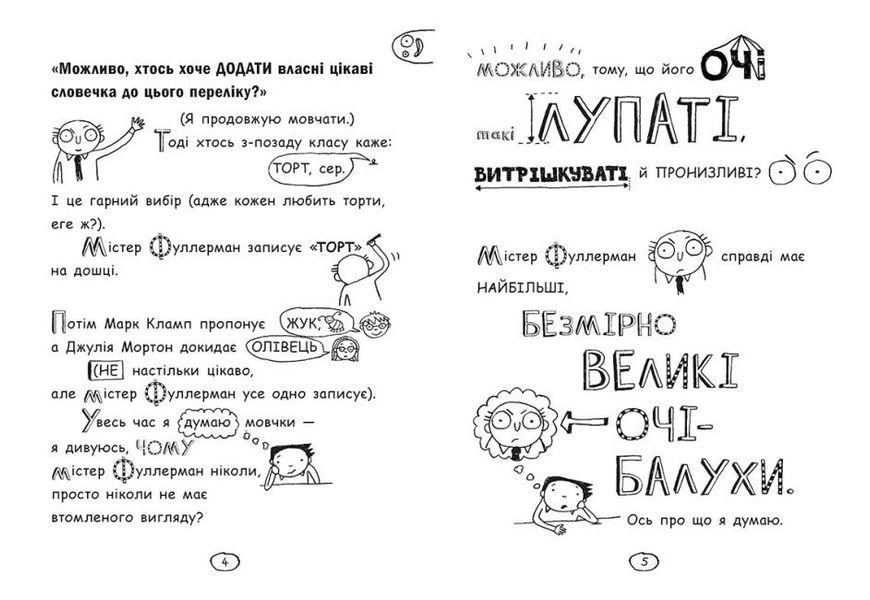 «Можливо, хтось хоче ДОДАТИ власні цікаві
словечка до цього переліку?»
(Я продовжую мовчати.)
Тоді хтось з-позаду класу каже:
ТОРТ, сер.
І це гарний вибір (адже кожен любить торти,
еге ж?).
Містер Фуллерман записує «ТОРТ»
на дошці.
Потім Марк Кламп пропонує ЖУК,
а Джулія Мортон докидає ОЛІВЕЦЬ
(НЕ настільки цікаво,
але містер Фуллерман усе одно записує).
Увесь час я думаю мовчки —
я дивуюсь, ЧОМУ
містер Фуллерман ніколи,
просто ніколи не має
втомленого вигляду?
4
МОЖЛИВО, тому, що його ОЧІ
такі ЛУПАТІ,
ВИТРІШКУВАТІ й ПРОНИЗЛИВІ?
Містер Фуллерман справді має
НАЙБІЛЬШІ,
БЕЗМІРНО
ВЕЛИКІ
ОЧІ-
БАЛУХИ.
Ось про що я думаю.
5